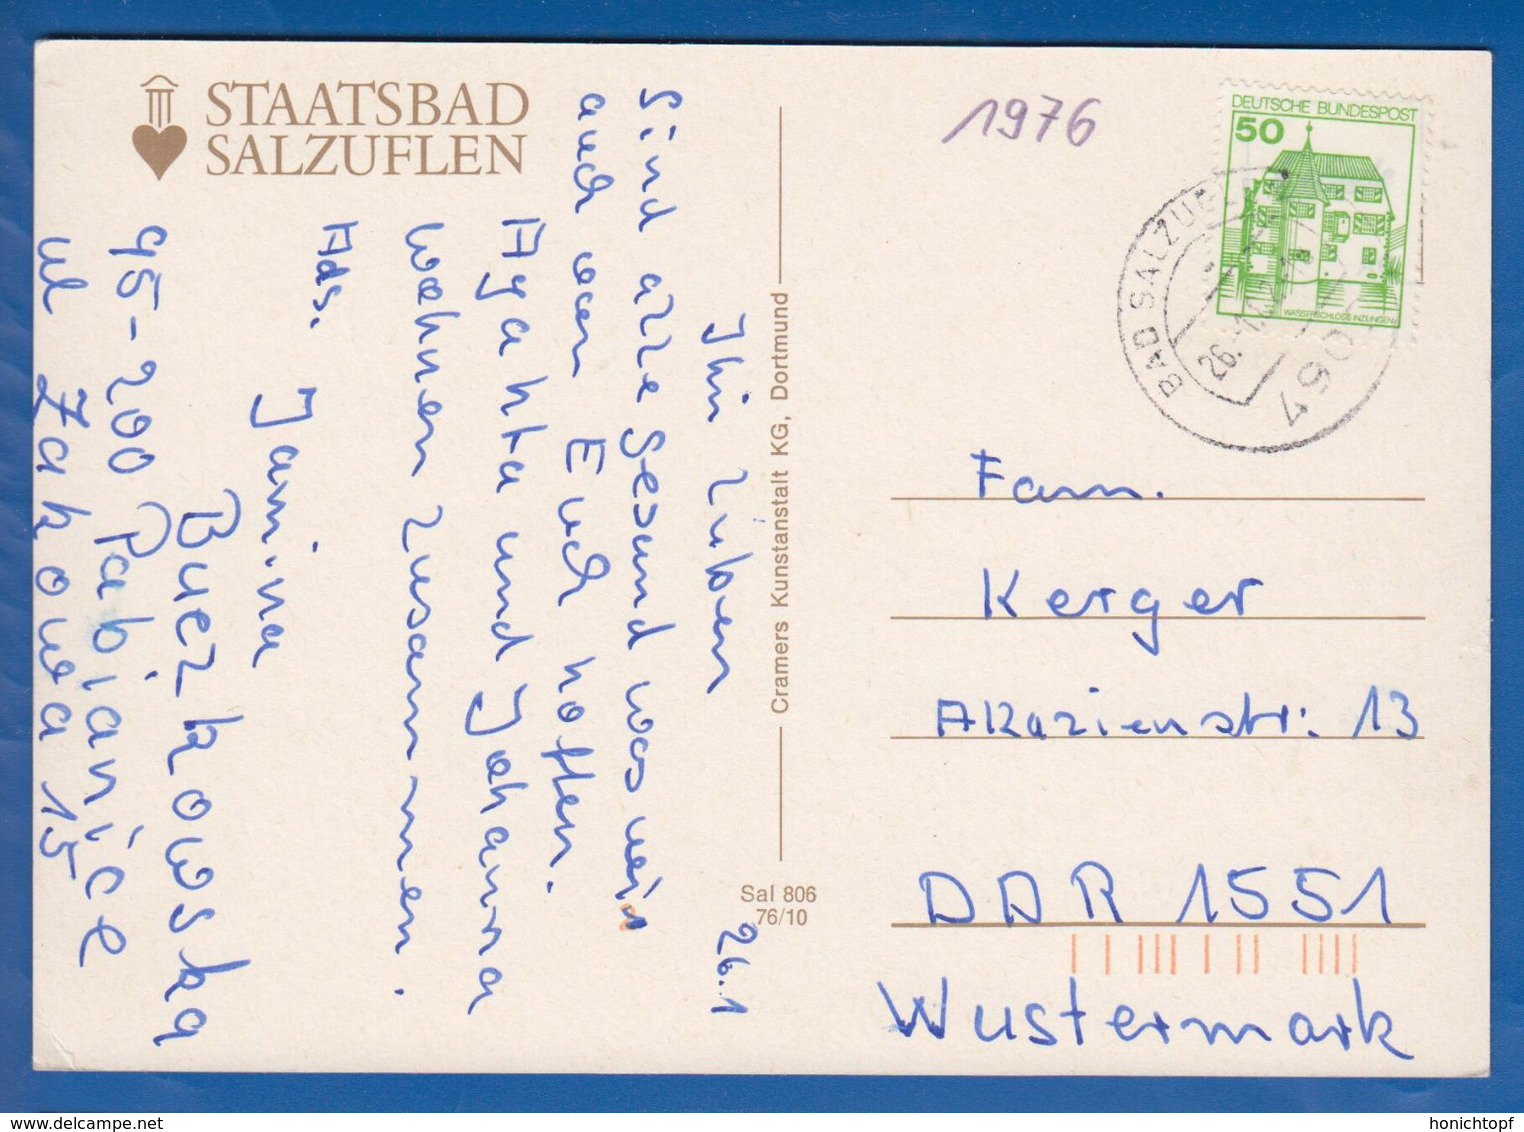 STAATSBAD
SALZUFLEN
1976
DEUTSCHE BUNDESPOST
50
WASSERSCHLOSS INZLINGEN
BAD SALZUFLEN
26.-1.
490
26.1
Ihr Lieben
Sind alle gesund was wir
auch von Euch hoffen.
Agahta und Johanna
wohnen zusammen.
Ads.
Janina
Buczkowska
95-200 Pabianice
ul Żakowa 15
Cramers Kunstanstalt KG, Dortmund
Sal 806
76/10
Fam.
Kerger
Akazienstr: 13
DDR 1551
Wustermark
honichtopf